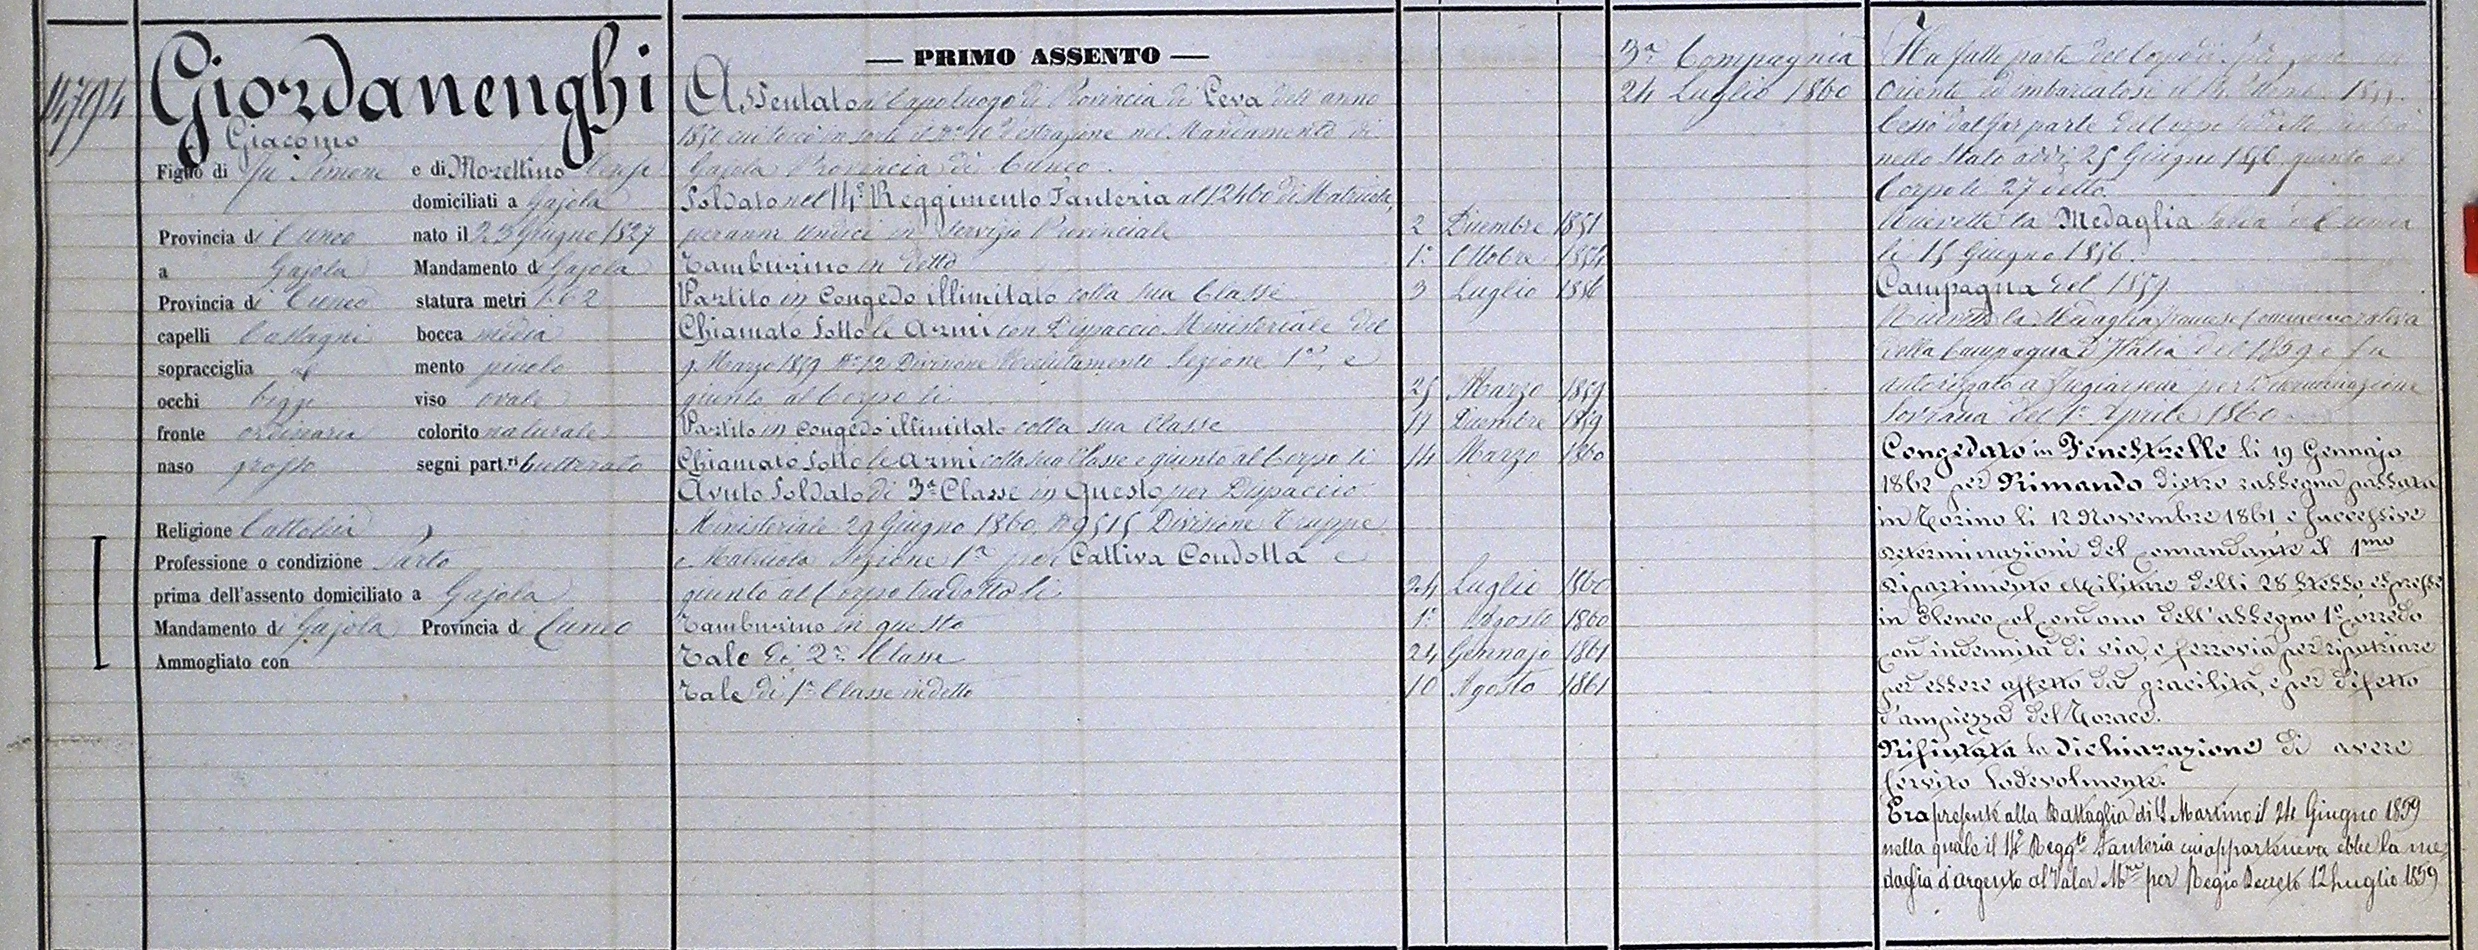 14794
Giordanenghi
Giacomo
Figlio di fu Simone e di Morettino
domiciliati a Gajola
Provincia di Cuneo nato il 23 Giugno 1827
a Gajola Mandamento di Gajola
Provincia di Cuneo statura metri 1.62
capelli Castagni bocca media
sopracciglia id mento piccolo
occhi biggi viso ovale
fronte ordinaria colorito naturale
naso grosso segni part.ri butterato
Religione Cattolica
Professione o condizione Sarto
prima dell'assento domiciliato a Gajola
Mandamento di Gajola Provincia di Cuneo
Ammogliato con
— PRIMO ASSENTO —
Assentato al Capoluogo di Provincia di Leva dell'anno
1850 cui toccò in sorte il n° 40 d'estrazione nel Mandamento di
Gajola Provincia di Cuneo.
Soldato nel 14° Reggimento Fanteria al 12460 di Matricola,
per anni undici in servizio Provinciale 2 Dicembre 1851
Tamburino in detto 1° Ottobre 1854
Partito in congedo illimitato colla sua Classe 3 Luglio 1856
Chiamato sotto le armi con Dispaccio Ministeriale del
9 Marzo 1859 N° 12 Divisione Reclutamento Sezione 1a, e
giunto al Corpo li 25 Marzo 1859
Partito in congedo illimitato colla sua Classe 11 Dicembre 1859
Chiamato sotto le armi colla sua Classe e giunto al Corpo li 14 Marzo 1860
Avuto Soldato di 3a Classe in questo per Dispaccio
Ministeriale 29 Giugno 1860, N° 9515 Divisione Truppe
e Matricola Sezione 1a per Cattiva Condotta e
giunto al Corpo tradotto li 24 Luglio 1860
Tamburino in questo 1° Agosto 1860
Tale di 2a Classe 24 Gennajo 1861
Tale di 1a Classe in detto 10 Agosto 1861
3a Compagnia
24 Luglio 1860
Ha fatto parte del Corpo di
Oriente ed imbarcatosi il
Cessò dal far parte del Corpo suddetto
nello Stato addì 25 Giugno 1856 giunto al
Corpo li 27 detto.
Ricevette la Medaglia
li 15 Giugno 1856.
Campagna del 1859
Ricevette la Medaglia francese Commemorativa
della Campagna d'Italia del 1859 e fu
autorizzato a fregiarsene per Determinazione
Sovrana del 1° Aprile 1860
Congedato in Fenestrelle li 19 Gennajo
1862 per Rimando dietro rassegna passata
in Torino li 12 Novembre 1861 e successive
determinazioni del Comandante il 1mo
Dipartimento Militare delli 28 stesso, espresse
in Elenco col condono dell'assegno 1° corredo
con indennità di via, e ferrovia per ripatriare
per essere affetto da gracilità, e per difetto
d'ampiezza del Torace.
Rifiutata la dichiarazione di avere
servito lodevolmente.
Era presente alla Battaglia di S. Martino il 24 Giugno 1859
nella quale il 14° Reggto Fanteria cui apparteneva ebbe la me-
daglia d'argento al Valor Mre per Regio Decreto 12 Luglio 1859